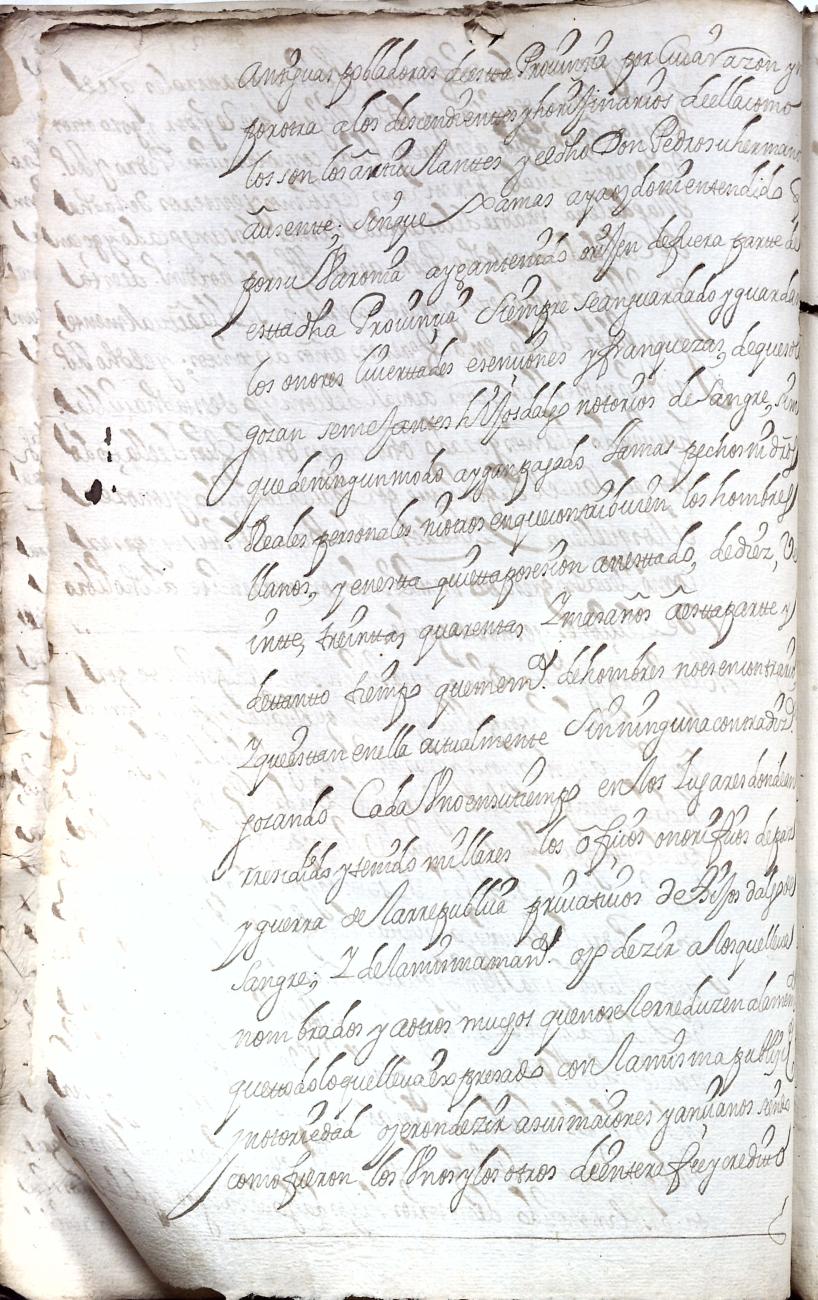 Antiguas pobladoras de esta Prouinçia por cuia razon y n
por otra a los descendientes y horijinarios de ella como
los son los articulantes y el dho Don Pedro su hermano
ausente; sin que xamas aya oydo ni entendido
por su Varonia aygan tenido orijen de fuera parte de
estta dha Prouinçia siempre se an guardado y guardan
los onores liuerttades esenciones y franquezas, de que
gozan semejantes hijos dalgo notorios de sangre, sin
que de ningun modo aygan pagado Jamas pechos ni
Reales personales ni otros en que contribuien los hombres
llanos, y en estta quietta posesion an esttado, de diez, Ve
intte, treinttas quarenttas Y mas años a estta partte y
de tanto tiempo que mem.a de hombres no es en contrario
Y que esttan en ella actualmente Sin ninguna contradiz.n
gozando Cada Vno en su tiempo en los lugares donde an
rresidido y tenido millares los ofiçios onorificos de paz
y guerra de la rrepublica priuatiuos de hijos dalgo de
sangre; Y de la misma man.a oyo dezir a los que lleua
nombrados y a otros muchos que no se le rreduzen a la mem.a
que todo lo que lleua expresado con la misma publica
y notoriedad oyeron dezir a sus maiores y ançianos siendo
como fueron los Vnos y los otros de entera fee y creditto